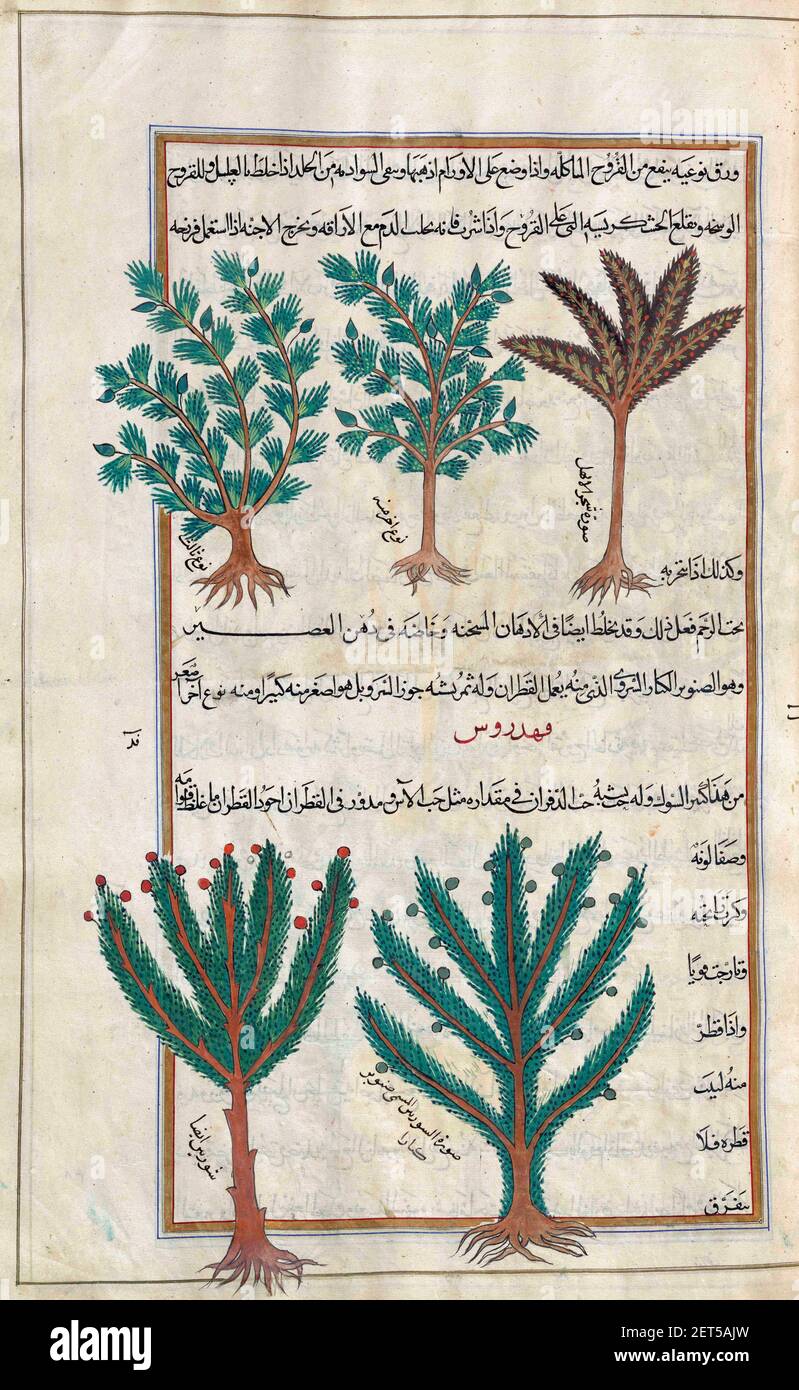 ورق نوعيه ينفع من القروح الماكله واذا وضع على الاورام اذهبها وينقى السواد من الجلد اذا خلط بالعسل وللقروح
الوسخه ويقلع الخشكريشه التى على القروح واذا شرب فانه يجلب الدم مع الاراقه ويخرج الاجنه اذا استعمل فرزجه
صورة شجر الابهل
نوع اخر منه
نوع ثالث
وكذلك اذا تبخر به
تحت الرحم فعل ذلك وقد يخلط ايضا فى الادهان المسخنه وخاصه فى دهن العصير
قدرس
وهو الصنوبر الكبار الذى منه يعمل القطران وله ثمر يشبه جوز السرو بل هو اصغر منه كثيرا ومنه نوع آخر اصغر
من هذا كثير الشوك وله حب يشبه حب فى مقداره مثل حب الآس ومدور فى القطران اجود القطران ما غلظ قوامه
وصفا لونه
وكرت رائحته
قويا
واذا قطر
منه ليث
قطره فلا
يتفرق
صورة المسمى صنوبر
كبارا
ايضا
alamy
Image ID: 2ET5AJW
www.alamy.com